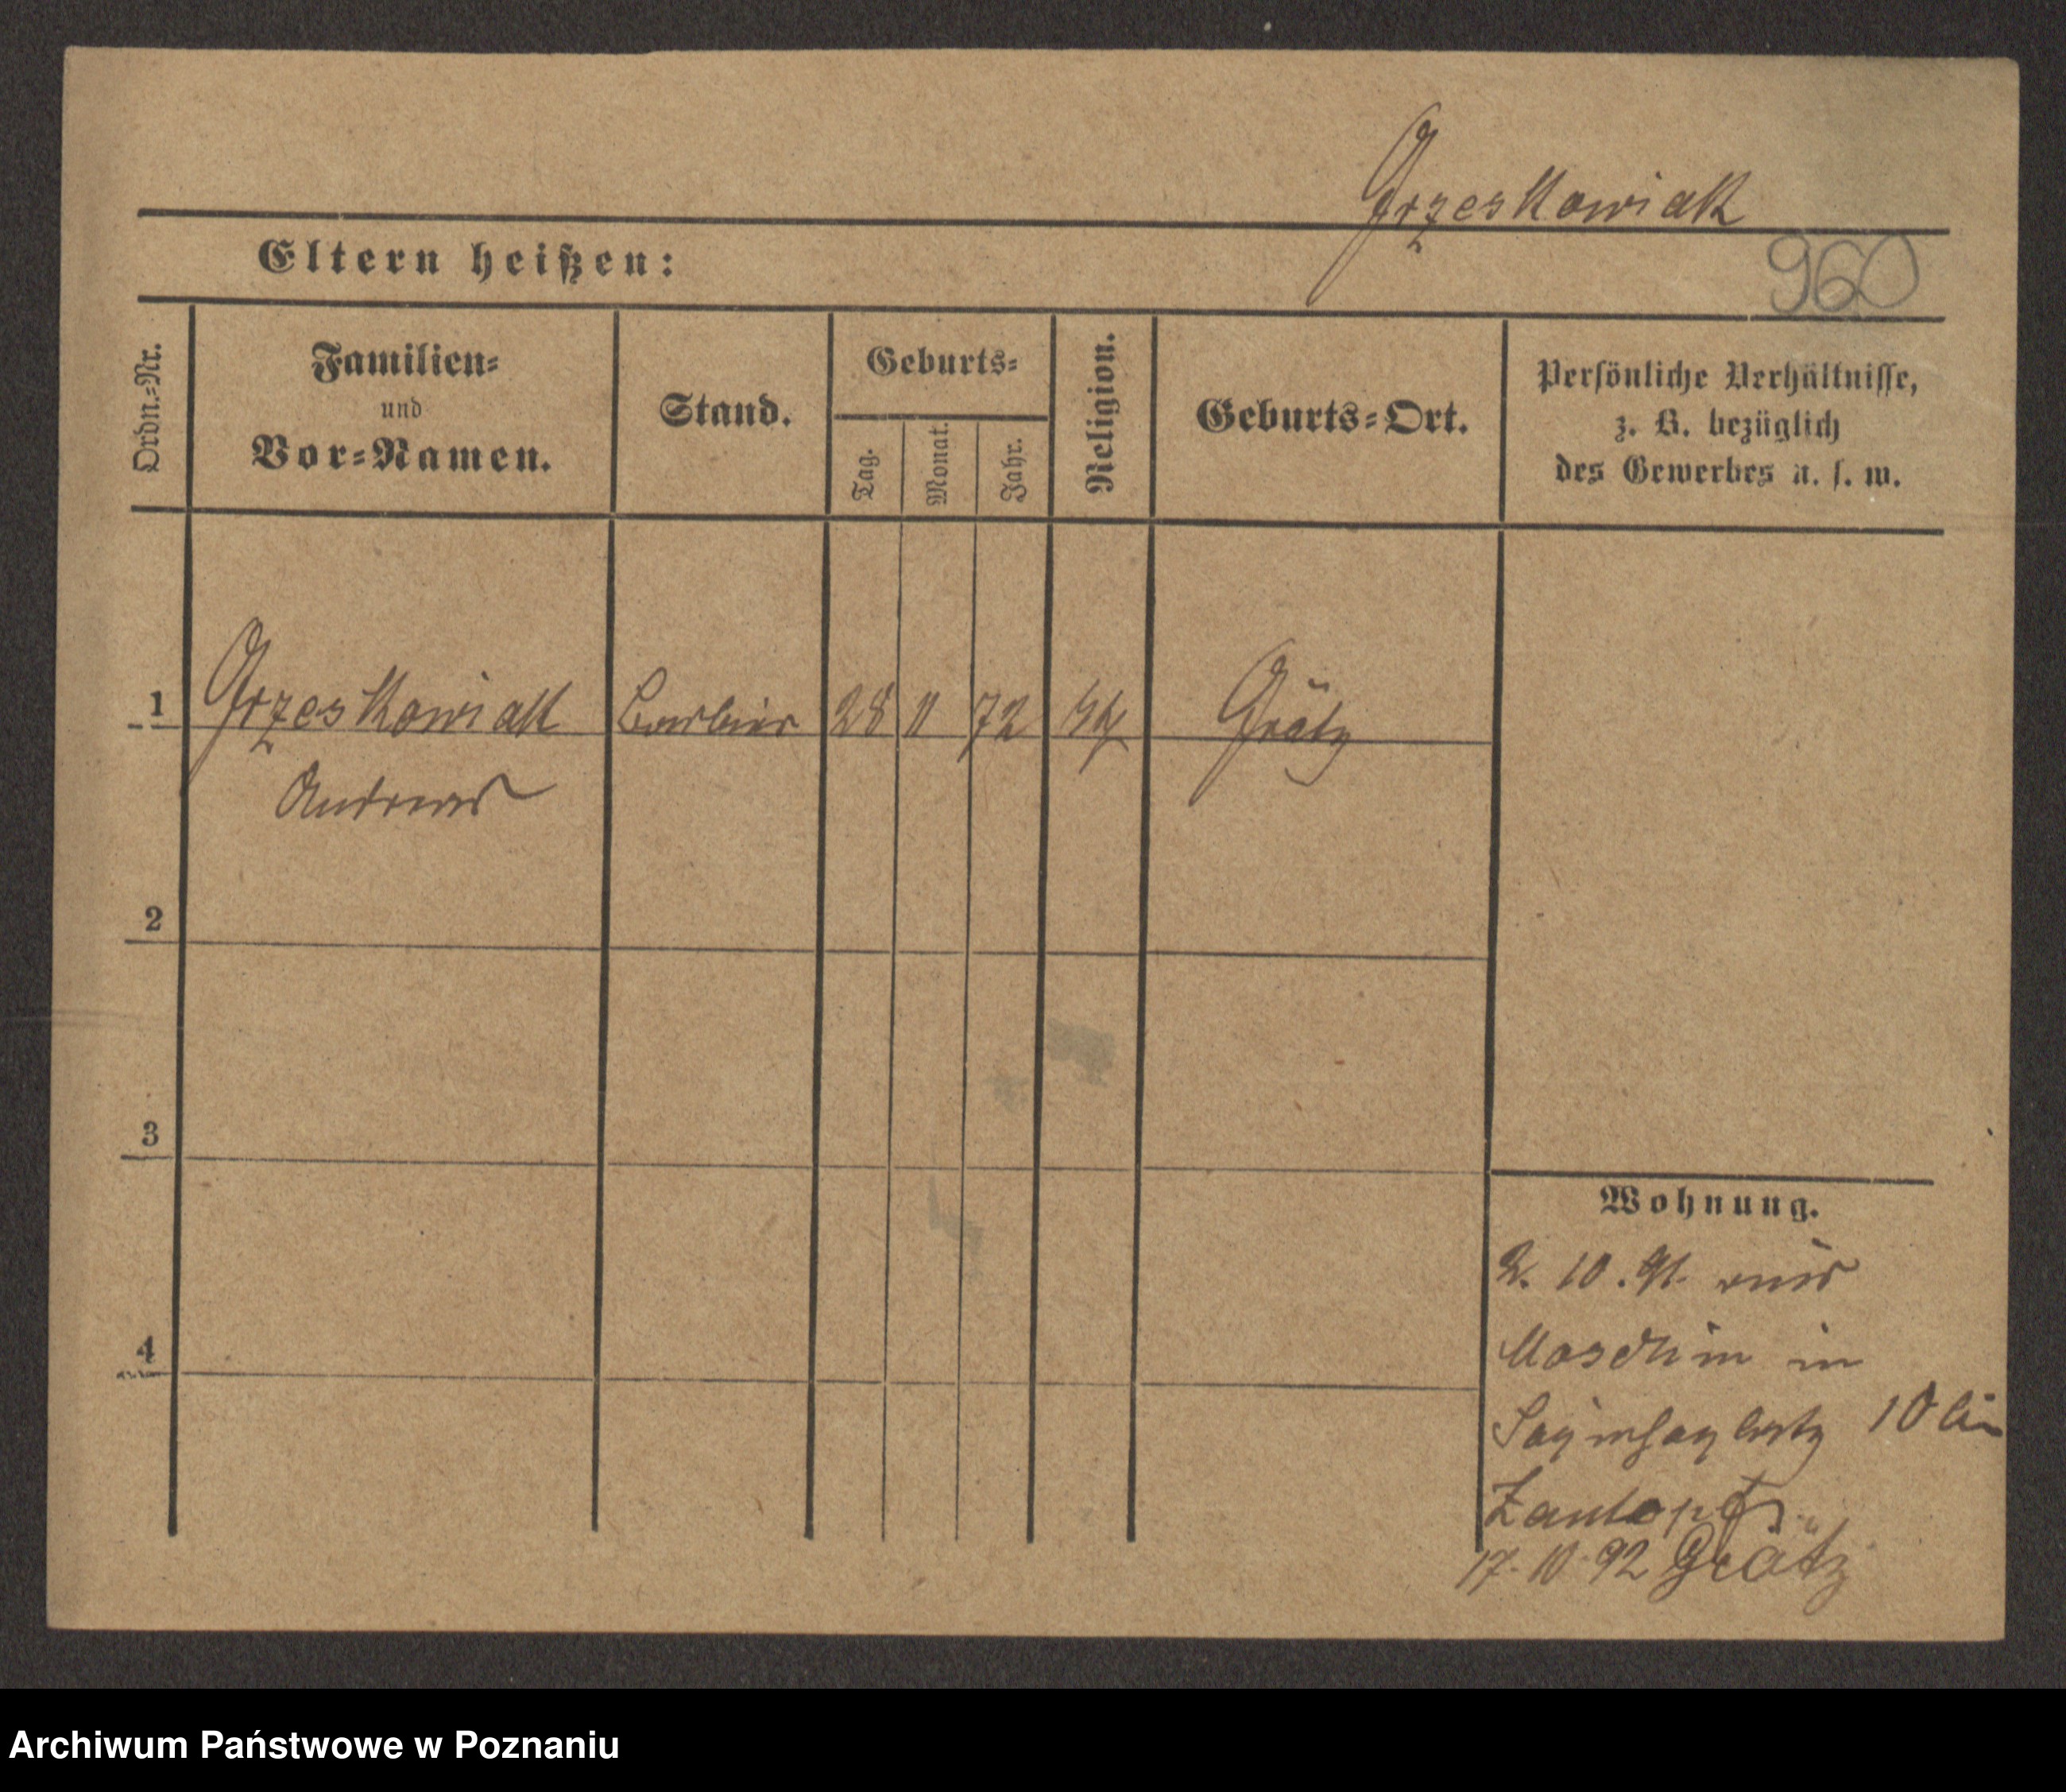 Grzeskowiak
Eltern heißen:
960
Ordn.-Nr.
Familien-
und
Vor-Namen.
Stand.
Geburts-
Tag.
Monat.
Jahr.
Religion.
Geburts-Ort.
Persönliche Verhältnisse,
z. B. bezüglich
des Gewerbes u. s. w.
1 Grzeskowiak Barbier 28 11 72 kth Grätz
Andreas
2
3
4
Wohnung.
2. 10. 91. aus
Moschin in
10 bei
17. 10. 92 Grätz
Archiwum Państwowe w Poznaniu